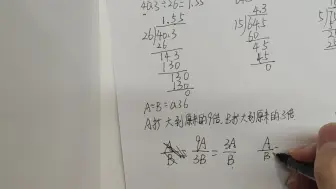 40.3÷26=1.55
1.55
26√40.3
26
14.3
130
130
130
0
4.3
15√64.5
60
45
45
0
A÷B=0.36
A扩大到原来的9倍,B扩大到原来的3倍
9A/3B=3A/B A/B